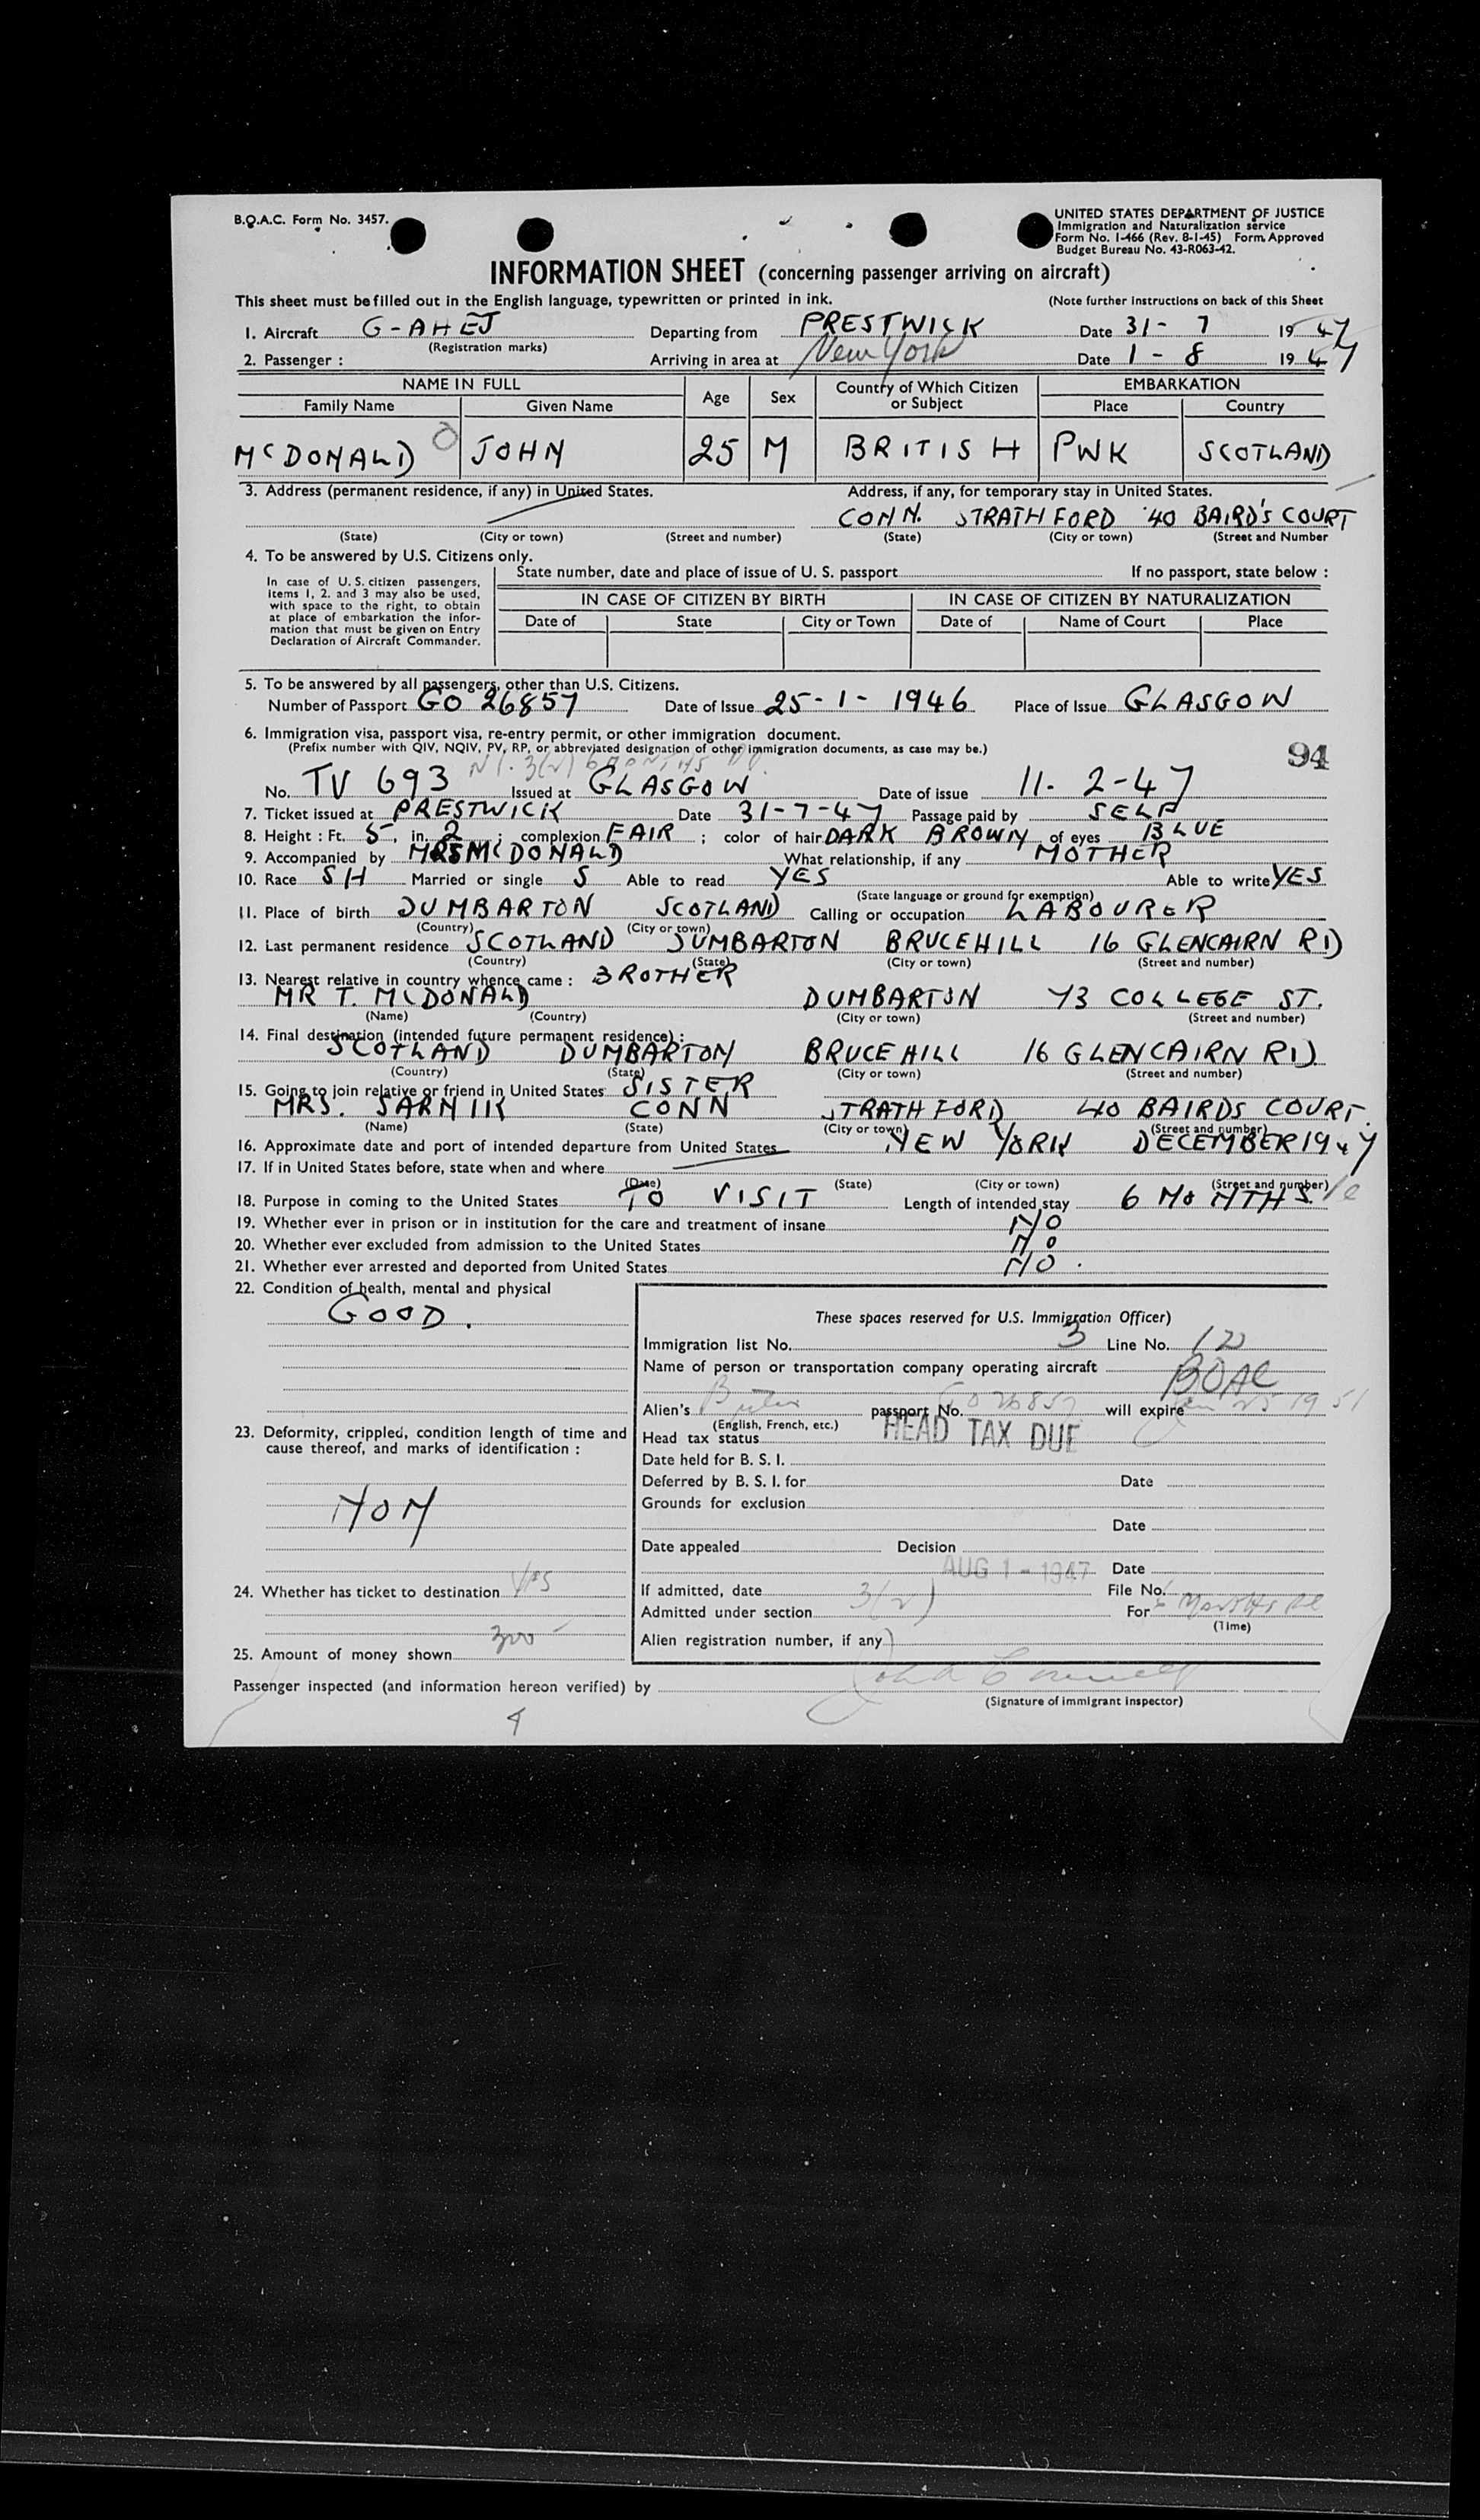 B.O.A.C. Form No. 3457.
UNITED STATES DEPARTMENT OF JUSTICE
Immigration and Naturalization service
Form No. I-466 (Rev. 8-1-45) Form Approved
Budget Bureau No. 43-R063-42.
INFORMATION SHEET (concerning passenger arriving on aircraft)
This sheet must be filled out in the English language, typewritten or printed in ink. (Note further instructions on back of this Sheet
1. Aircraft G-AHEJ Departing from PRESTWICK Date 31-7 1947
(Registration marks)
2. Passenger : Arriving in area at New York Date 1-8 1947
NAME IN FULL Age Sex Country of Which Citizen or Subject EMBARKATION
Family Name Given Name Place Country
McDONALD JOHN 25 M BRITISH PWK SCOTLAND
3. Address (permanent residence, if any) in United States. Address, if any, for temporary stay in United States.
CONN. STRATHFORD 40 BAIRD'S COURT
(State) (City or town) (Street and number) (State) (City or town) (Street and Number
4. To be answered by U.S. Citizens only.
State number, date and place of issue of U. S. passport If no passport, state below :
In case of U. S. citizen passengers,
items 1, 2. and 3 may also be used,
with space to the right, to obtain
at place of embarkation the infor-
mation that must be given on Entry
Declaration of Aircraft Commander.
IN CASE OF CITIZEN BY BIRTH IN CASE OF CITIZEN BY NATURALIZATION
Date of State City or Town Date of Name of Court Place
5. To be answered by all passengers, other than U.S. Citizens.
Number of Passport GO 26857 Date of Issue 25-1-1946 Place of Issue GLASGOW
6. Immigration visa, passport visa, re-entry permit, or other immigration document.
(Prefix number with QIV, NQIV, PV, RP, or abbreviated designation of other immigration documents, as case may be.)
94
3(2) 6 MONTHS
No. TV 693 Issued at GLASGOW Date of issue 11.2-47
7. Ticket issued at PRESTWICK Date 31-7-47 Passage paid by SELF
8. Height : Ft. 5, in. 2 ; complexion FAIR ; color of hair DARK BROWN of eyes BLUE
9. Accompanied by MRS McDONALD What relationship, if any MOTHER
10. Race SH Married or single S Able to read YES Able to write YES
(State language or ground for exemption)
11. Place of birth DUMBARTON SCOTLAND Calling or occupation LABOURER
(Country) (City or town)
12. Last permanent residence SCOTLAND DUMBARTON BRUCEHILL 16 GLENCAIRN RD
(Country) (State) (City or town) (Street and number)
13. Nearest relative in country whence came : BROTHER
MR T. McDONALD DUMBARTON 73 COLLEGE ST.
(Name) (Country) (City or town) (Street and number)
14. Final destination (intended future permanent residence) :
SCOTLAND DUMBARTON BRUCEHILL 16 GLENCAIRN RD.
(Country) (State) (City or town) (Street and number)
15. Going to join relative or friend in United States SISTER
MRS. SARNIIK CONN STRATHFORD 40 BAIRDS COURT.
(Name) (State) (City or town) (Street and number)
16. Approximate date and port of intended departure from United States NEW YORK DECEMBER 1947
17. If in United States before, state when and where
(Date) (State) (City or town) (Street and number)
18. Purpose in coming to the United States TO VISIT Length of intended stay 6 MONTHS
19. Whether ever in prison or in institution for the care and treatment of insane NO
20. Whether ever excluded from admission to the United States NO
21. Whether ever arrested and deported from United States NO.
22. Condition of health, mental and physical
GOOD.
These spaces reserved for U.S. Immigration Officer)
Immigration list No. 3 Line No. 12
Name of person or transportation company operating aircraft BOAC
Alien's passport No. GO 26857 will expire Jan 25 1951
(English, French, etc.)
Head tax status HEAD TAX DUE
23. Deformity, crippled, condition length of time and
cause thereof, and marks of identification :
NON
Date held for B. S. I.
Deferred by B. S. I. for Date
Grounds for exclusion
Date
Date appealed Decision
AUG 1-1947 Date
24. Whether has ticket to destination Yes
If admitted, date File No.
Admitted under section 3(2) For 6 Months
(Time)
Alien registration number, if any
25. Amount of money shown 300
Passenger inspected (and information hereon verified) by
(Signature of immigrant inspector)